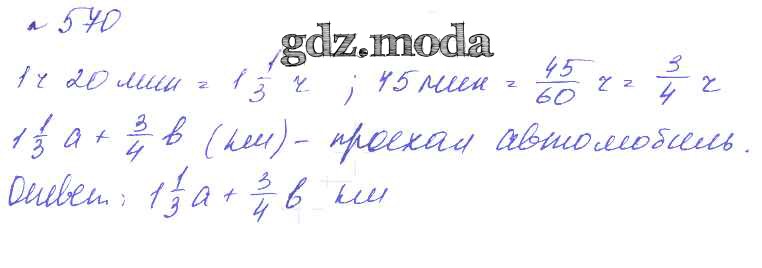 № 570
gdz.moda
1 ч 20 мин = 1 1/3 ч ; 45 мин = 45/60 ч = 3/4 ч
1 1/3 a + 3/4 в (км) – проехал автомобиль.
Ответ: 1 1/3 a + 3/4 в км